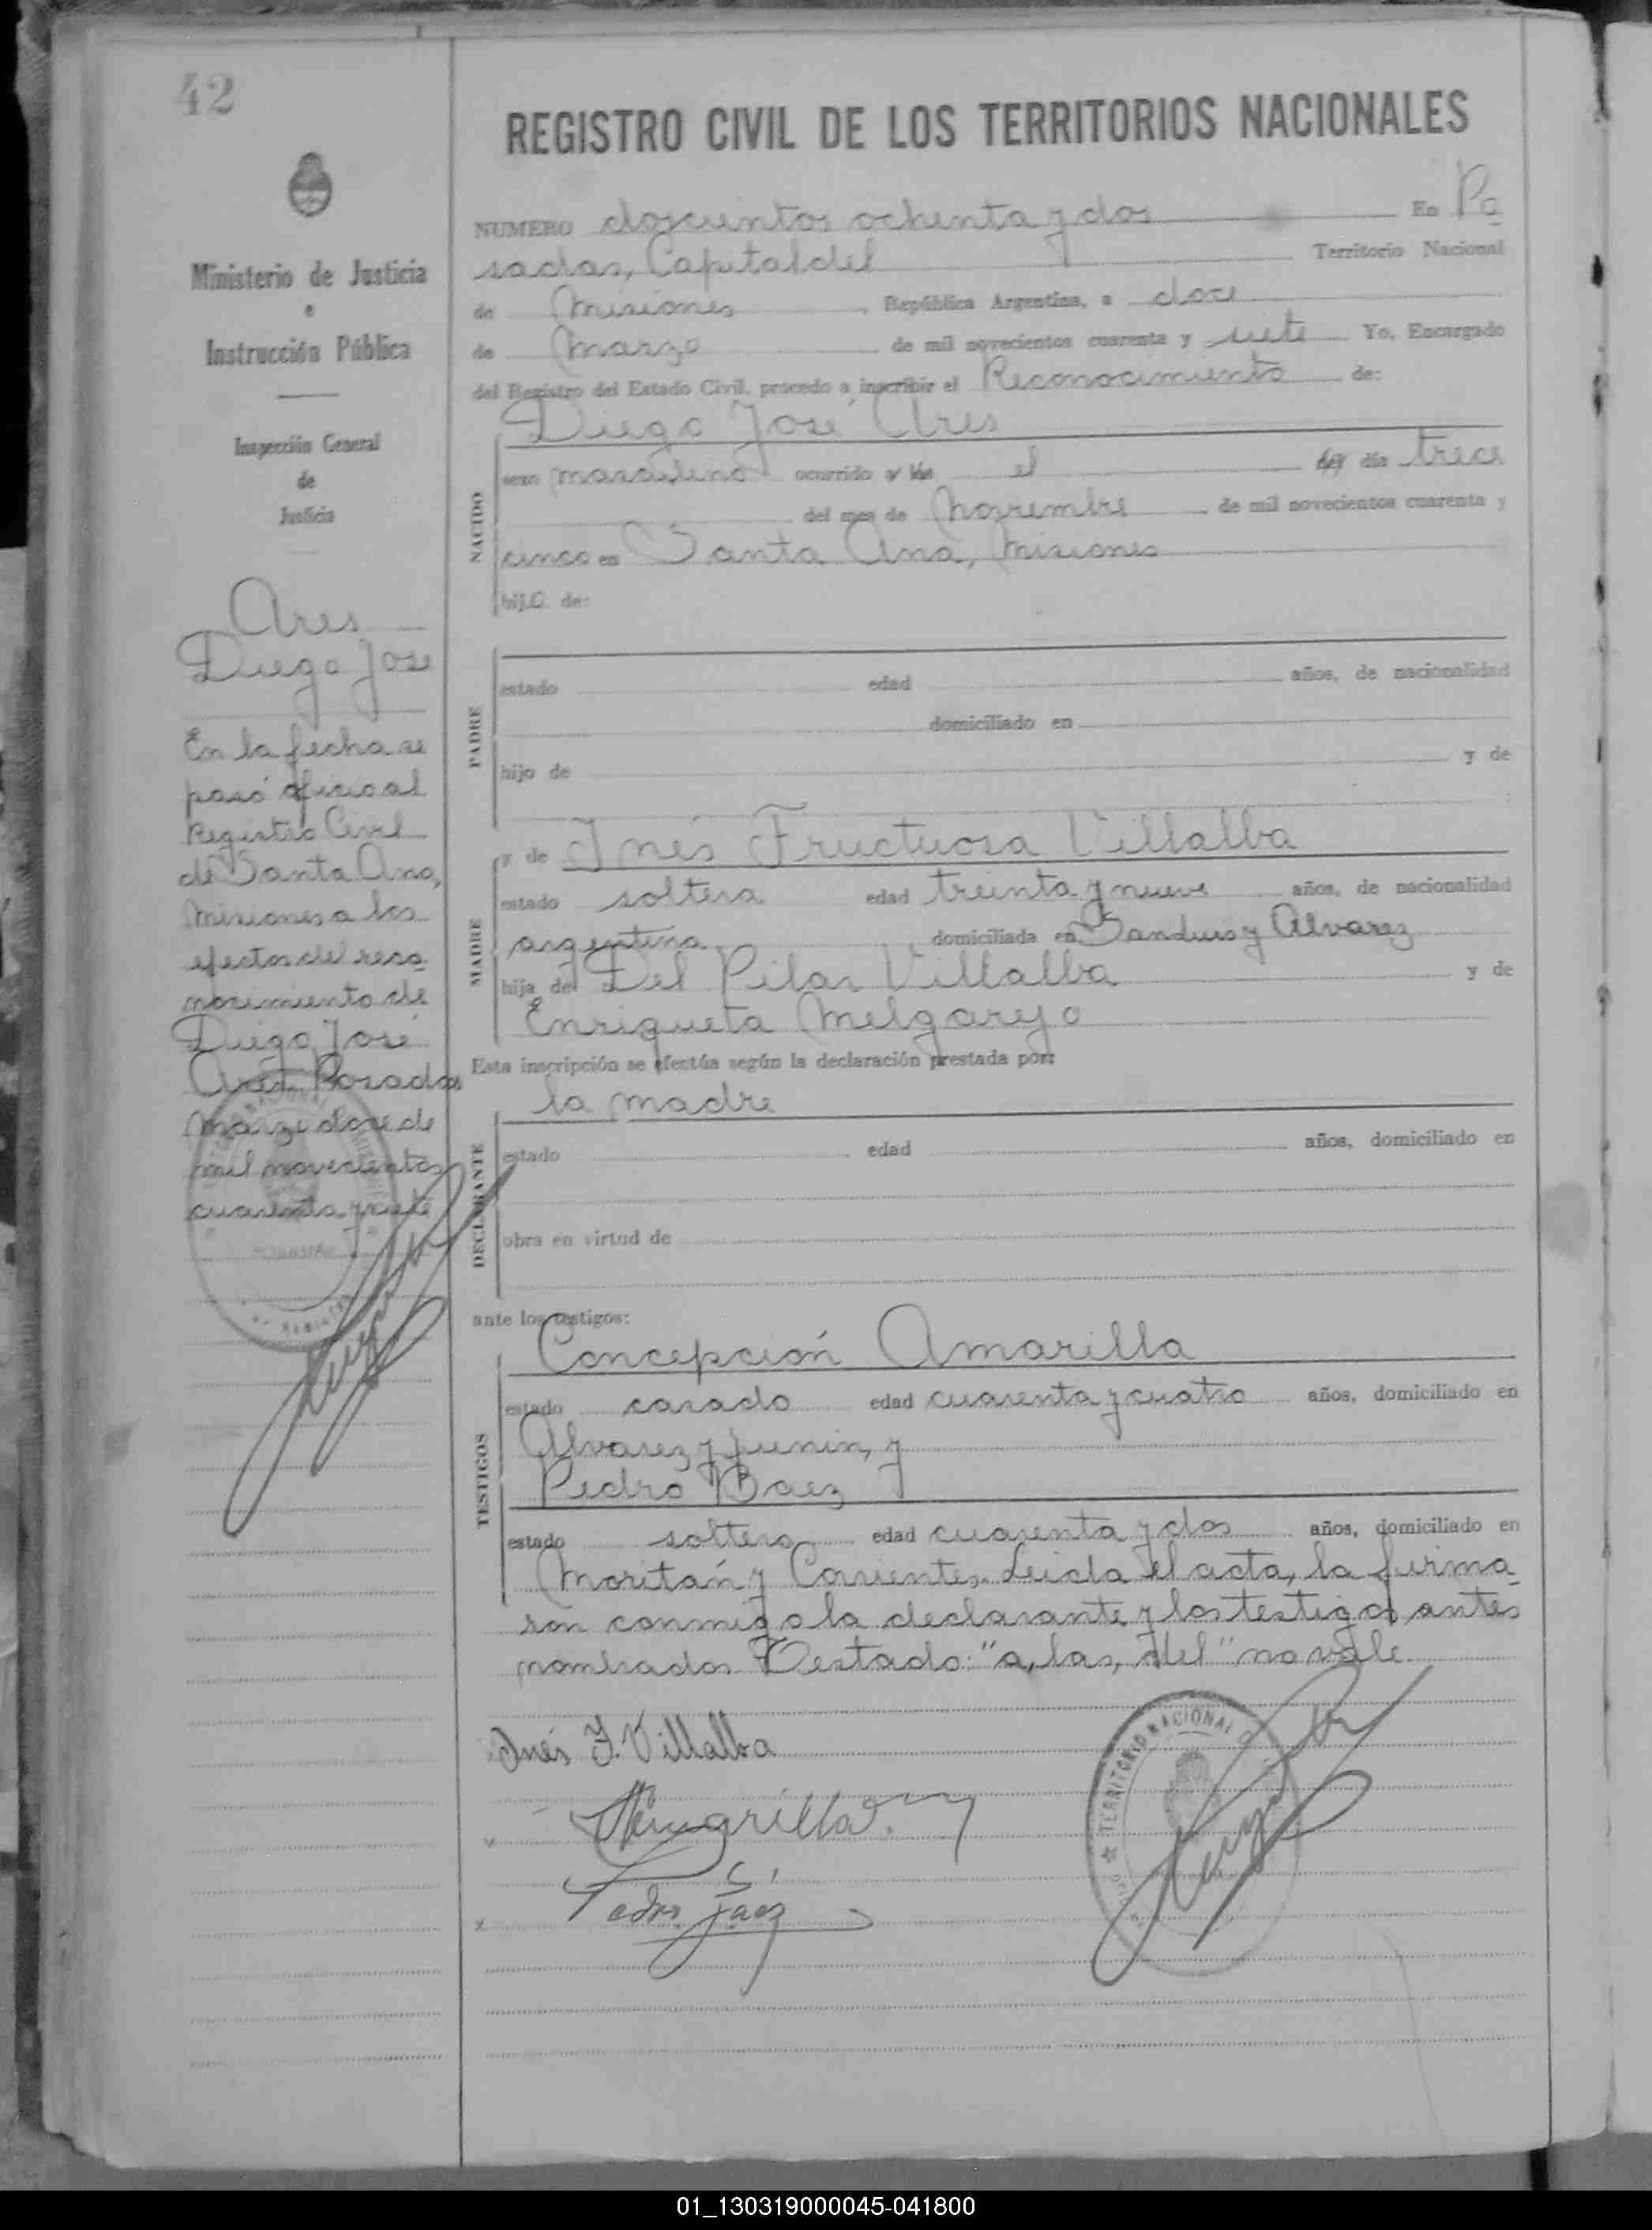 42
REGISTRO CIVIL DE LOS TERRITORIOS NACIONALES
Ministerio de Justicia
e
Instrucción Pública
Inspección General
de
Justicia
Ares
Diego José
En la fecha se
pasó oficio al
Registro Civil
de Santa Ana,
Misiones a los
efectos del reco-
nocimiento de
Diego José
Ares. Posadas
Marzo doce de
mil novecientos
cuarenta y siete
NUMERO doscientos ochenta y dos En Po
sadas, Capital del Territorio Nacional
de Misiones, República Argentina, a doce
de Marzo de mil novecientos cuarenta y siete Yo, Encargado
del Registro del Estado Civil, procedo a inscribir el Reconocimiento de:
Diego José Ares
NACIDO
sexo masculino ocurrido a las el del día trece
del mes de Noviembre de mil novecientos cuarenta y
cinco en Santa Ana, Misiones
hijo de:
PADRE
estado edad años, de nacionalidad
domiciliado en
hijo de y de
MADRE
y de Inés Fructuosa Villalba
estado soltera edad treinta y nueve años, de nacionalidad
argentina, domiciliada en y Alvarez
hija de Del Pilar Villalba y de
Enriqueta Melgarejo
Esta inscripción se efectúa según la declaración prestada por:
la madre
DECLARANTE
estado edad años, domiciliado en
obra en virtud de
ante los testigos:
TESTIGOS
Concepción Amarilla
estado casado edad cuarenta y cuatro años, domiciliado en
Alvarez y Junin, y
Pedro Baez
estado soltero edad cuarenta y dos años, domiciliado en
Moritán y Corrientes. Leida el acta, la firma-
ron conmigo la declarante y los testigos antes
nombrados Testado: "a, las, del" no vale
Inés F. Villalba
Amarilla
Pedro Báez
TERRITORIO NACIONAL
01_130319000045-041800